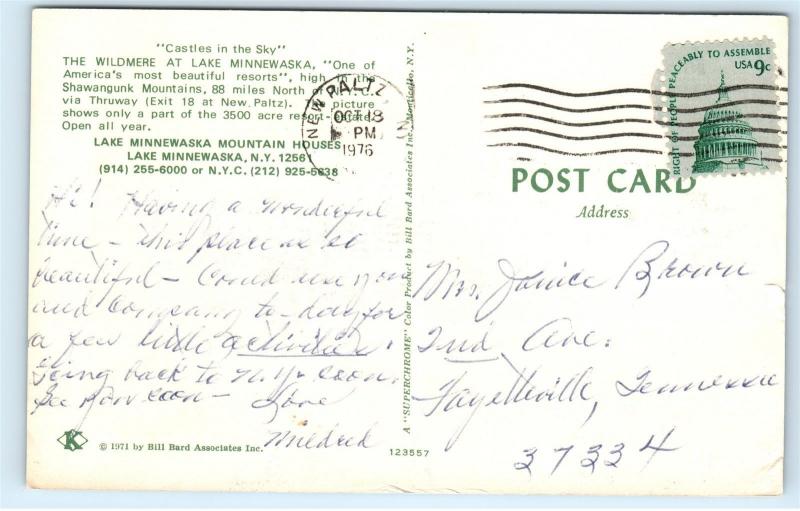 "Castles in the Sky"
THE WILDMERE AT LAKE MINNEWASKA, "One of
America's most beautiful resorts", high in the
Shawangunk Mountains, 88 miles North of N.Y.C.
via Thruway (Exit 18 at New Paltz). picture
shows only a part of the 3500 acre resort-estate.
Open all year.
LAKE MINNEWASKA MOUNTAIN HOUSES
LAKE MINNEWASKA, N.Y. 12561
(914) 255-6000 or N.Y.C. (212) 925-5638
NEW PALTZ
OCT 18
PM
1976
RIGHT OF PEOPLE PEACEABLY TO ASSEMBLE
USA 9c
POST CARD
Address
Hi! Having a wonderful
time - this place is so
beautiful - Could use you
and company to-day for
a few little activities.
Going back to N.Y. soon.
See you soon - Love
Mildred
Mrs. Janice Brown
2nd Ave.
Fayetteville, Tennessee
37334
A "SUPERCHROME" Color Product by Bill Bard Associates Inc., Monticello, N.Y.
K
© 1971 by Bill Bard Associates Inc.
123557